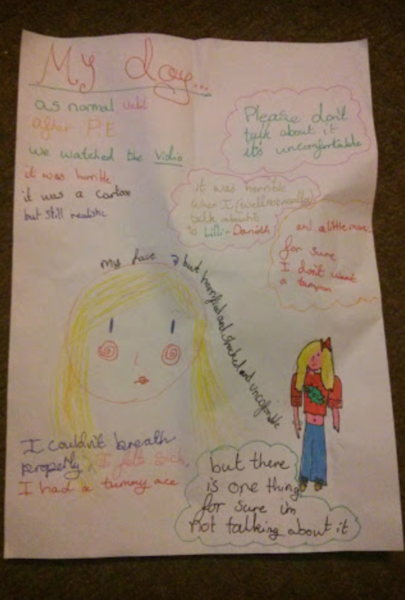 My day...
as normal until
after P.E
we watched the Vidio
it was horrible
it was a cartoon
but still realistic
Please don't
talk about it
it's uncomfortable
it was horrible
when I (
talk about it
to Lilli-
and a little more
for sure
I don't want
a tampon
my face but horrified and shocked and uncomfortable
I couldn't breath
properly, I felt sick,
I had a tummy ace
but there
is one thing
for sure i'm
not talking about it